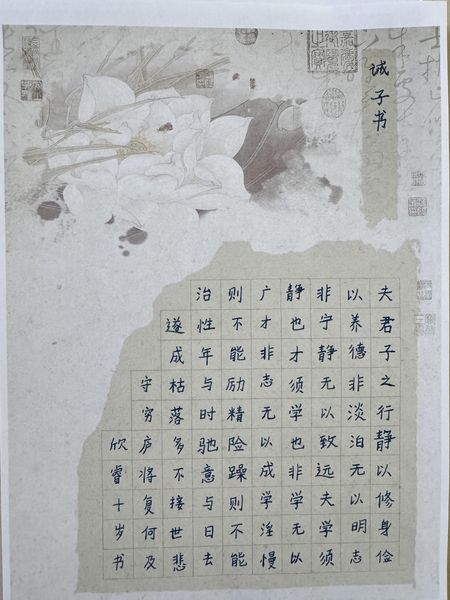 诫子书
夫君子之行静以修身俭
以养德非淡泊无以明志
非宁静无以致远夫学须
静也才须学也非学无以
广才非志无以成学淫慢
则不能励精险躁则不能
治性年与时驰意与日去
遂成枯落多不接世悲
守穷庐将复何及
欣睿十岁书